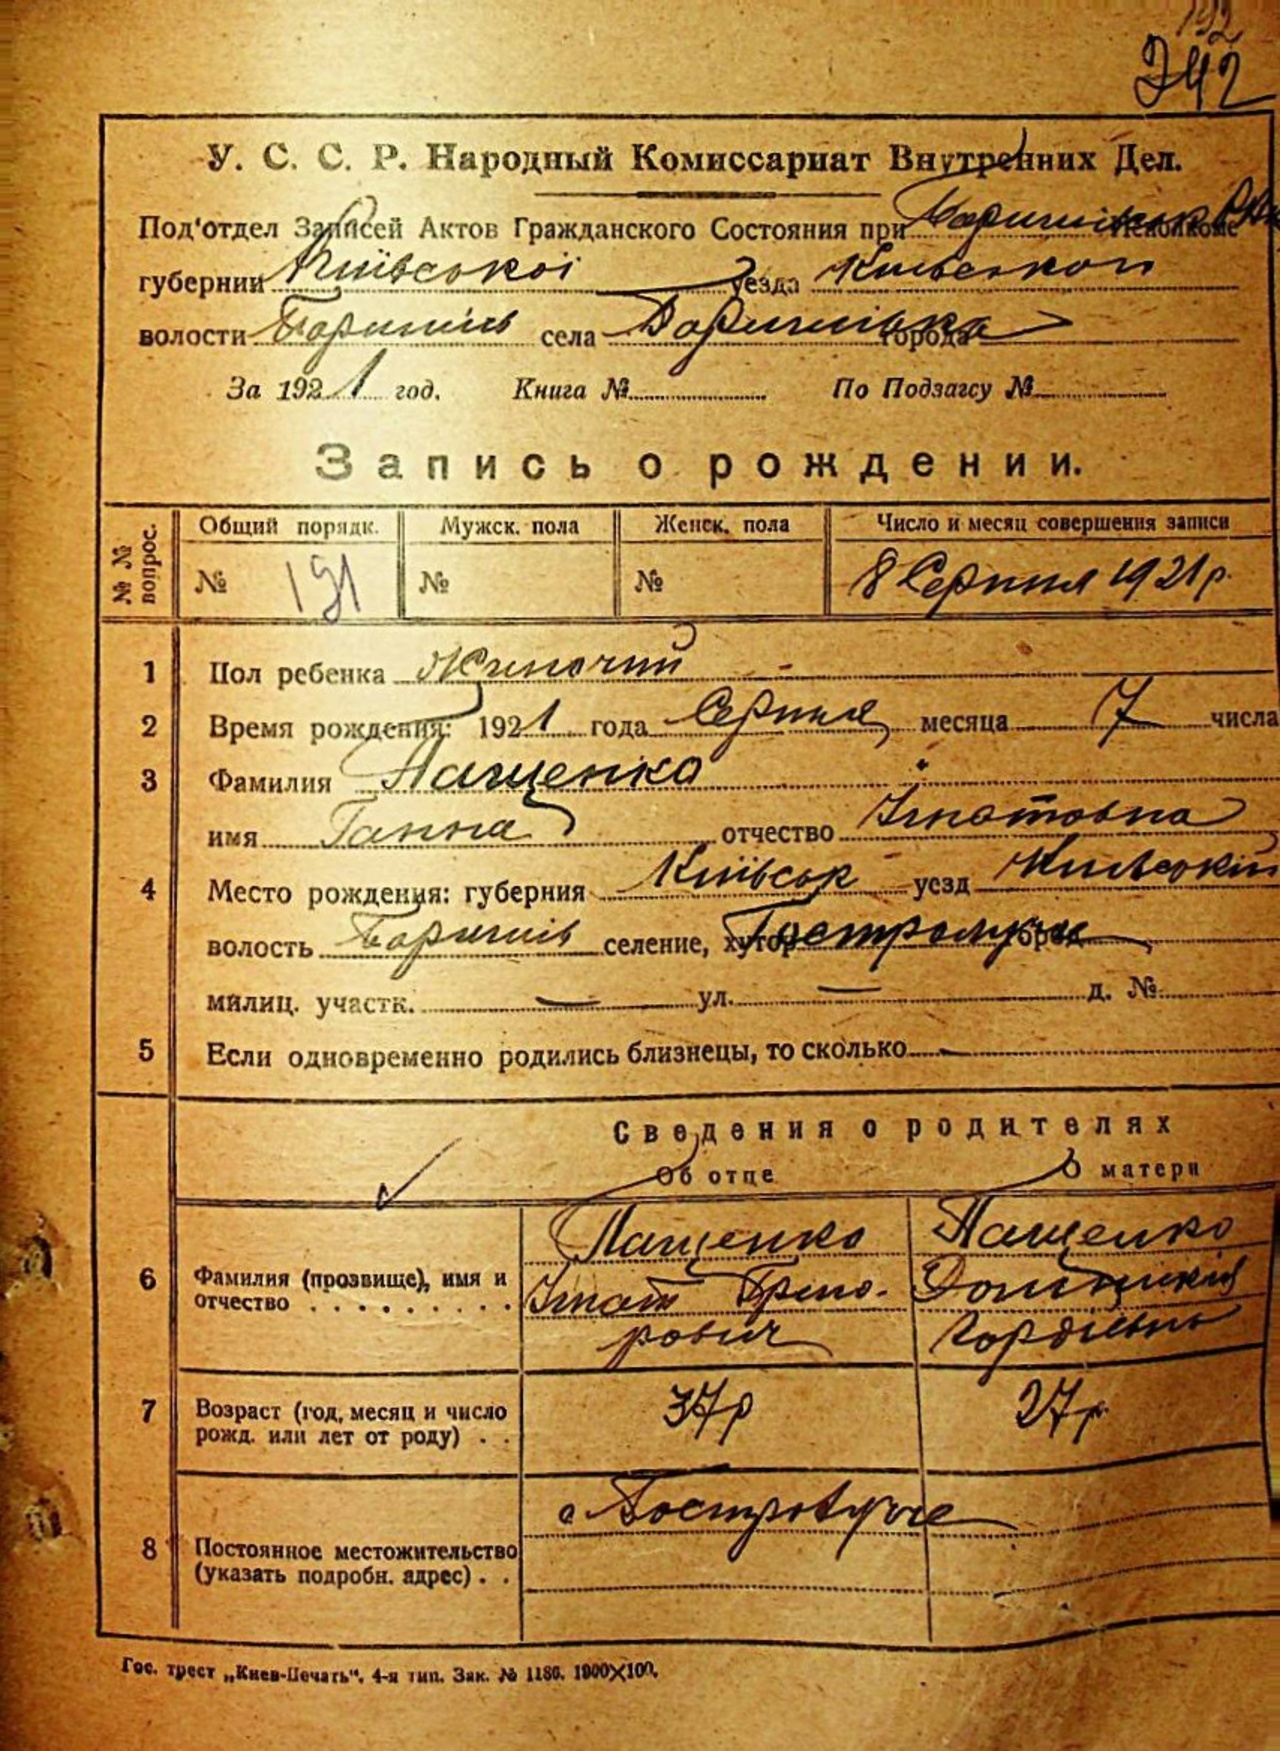 192
242
У. С. С. Р. Народный Комиссариат Внутренних Дел.
Под'отдел Записей Актов Гражданского Состояния при Исполкоме
губернии Київської уезда Київської
волости Баришів села города
За 1921 год. Книга № По Подзагсу №
Запись о рождении.
№ № вопрос. Общий порядк. Мужск. пола Женск. пола Число и месяц совершения записи
№ 191 № № 8 Серпня 1921 р.
1 Пол ребенка Жиночий
2 Время рождения: 1921 года Серпня месяца 7 числа
3 Фамилия Пащенко
имя Ганна отчество Игнатовна
4 Место рождения: губерния Київськ уезд Київський
волость Баришів селение, хутор город
милиц. участк. — ул. — д. №
5 Если одновременно родились близнецы, то сколько —
Сведения о родителях
Об отце О матери
Пащенко Пащенко
6 Фамилия (прозвище), имя и Игнат Григо-
отчество . . . . . . . . . рович
7 Возраст (год, месяц и число 37 р 27 р
рожд. или лет от роду) . .
с Гостролуче
8 Постоянное местожительство
(указать подробн. адрес) . .
Гос. трест „Киев-Печать“. 4-я тип. Зак. № 1186. 1000×100.